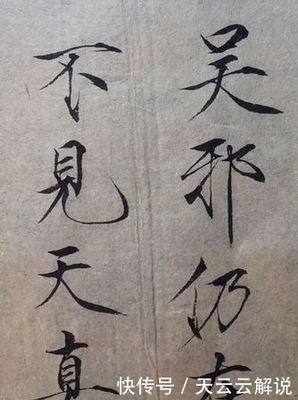 吴邪仍在
不見天真
快传号 / 天云云解说